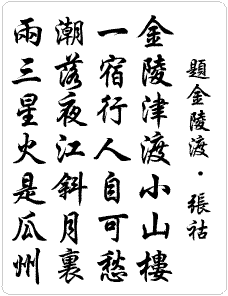 題金陵渡·張祜
金陵津渡小山樓
一宿行人自可愁
潮落夜江斜月裏
兩三星火是瓜州